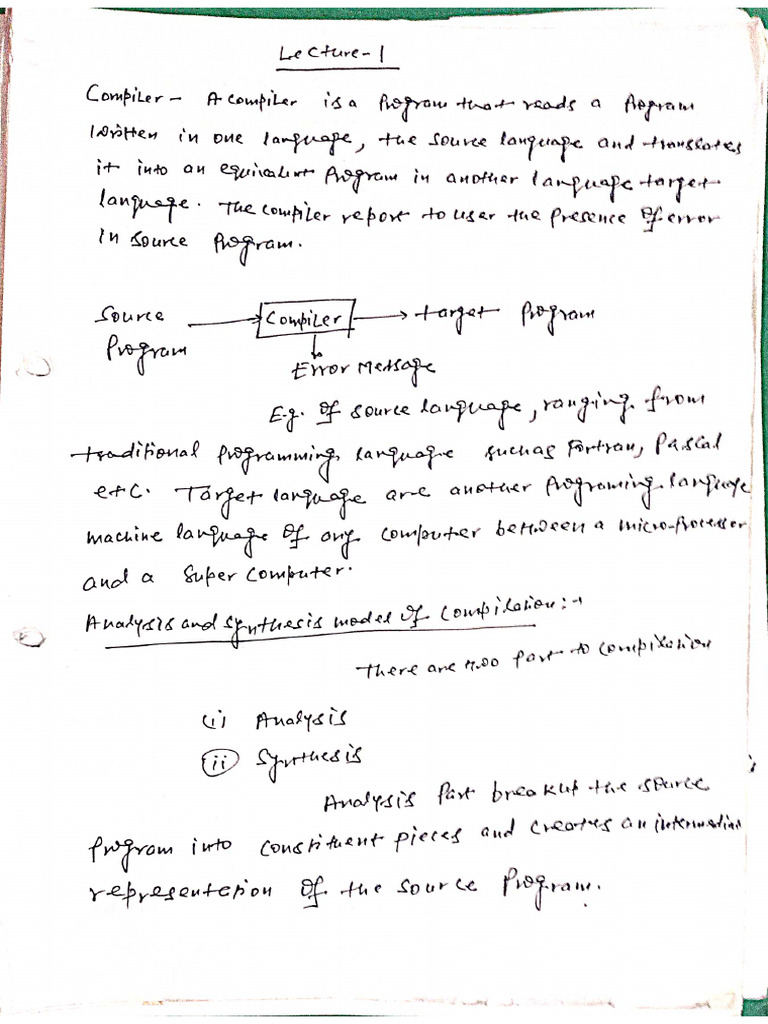 Lecture-1
Compiler - A compiler is a Program that reads a Program
written in one language, the source language and translates
it into an equivalent Program in another language target
language. The compiler report to user the Presence of error
in source Program.
Source Program → Compiler → target Program
Error Message
E.g. of source language, ranging from
traditional Programming language suchas Fortran, Pascal
etc. Target language are another Programing language
machine language of any computer between a micro-Processer
and a super computer.
Analysis and synthesis model of Compilation:-
There are two Part to compilation
(i) Analysis
(ii) Synthesis
Analysis Part breakup the source
Program into constituent pieces and creates an
representation of the source Program.